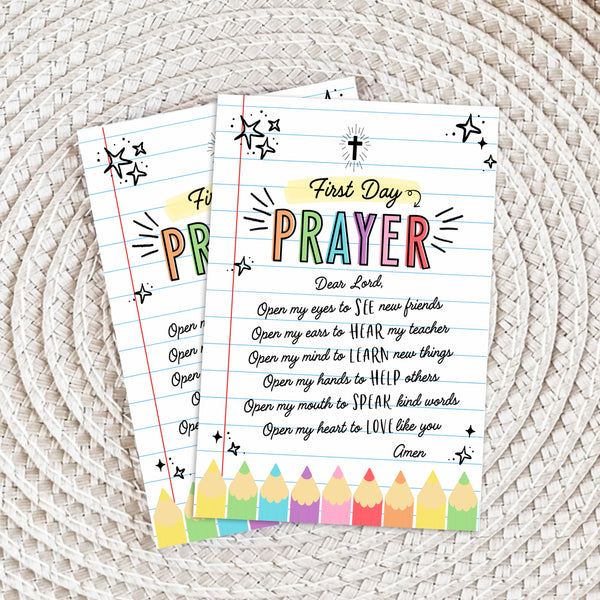 First Day
PRAYER
Dear Lord,
Open my eyes to SEE new friends
Open my ears to HEAR my teacher
Open my mind to LEARN new things
Open my hands to HELP others
Open my mouth to SPEAK kind words
Open my heart to LOVE like you
Amen
Fi
PR
Open my
Open my
Open
Open
Open